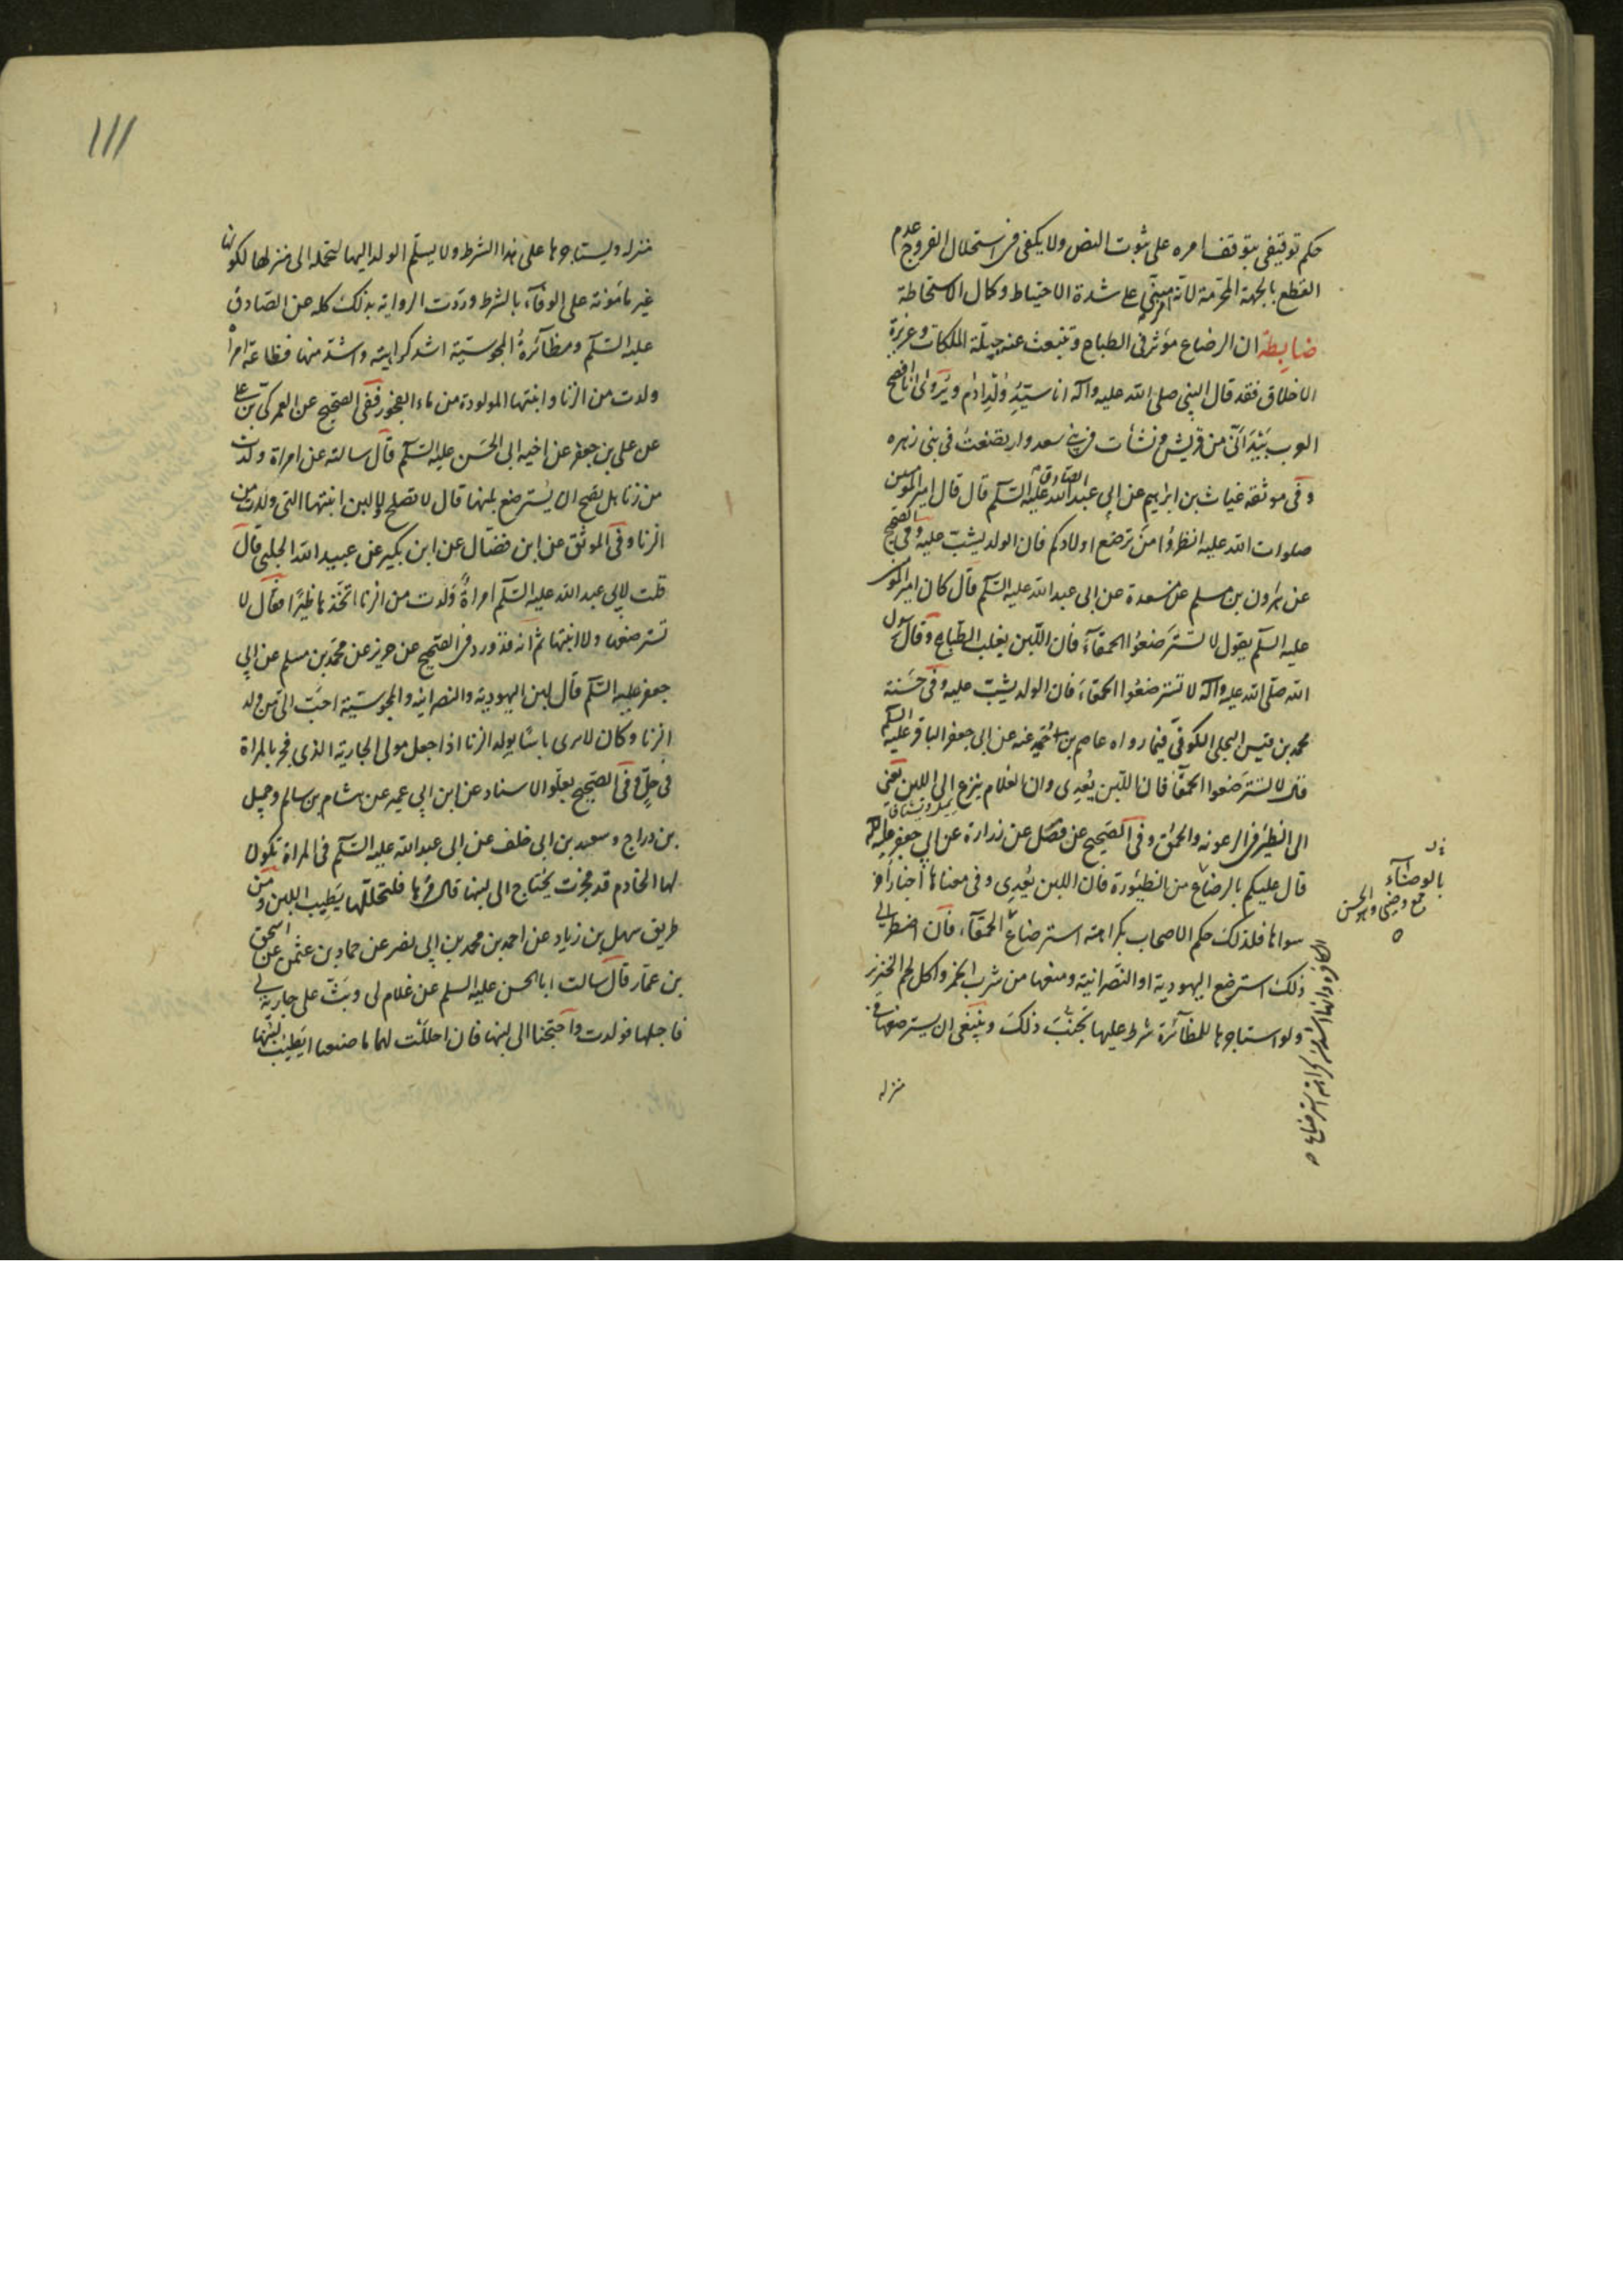 حكم توقيفى يتوقف امره على ثبوت النص ولا يكفى فى استحلال الفروج عدم
القطع بالجهة المحرمة لانه مبنى على شدة الاحتياط وكمال الاستحاطة
ضابطة ان الرضاع مؤثر فى الطباع وتنبعث عنه جبلة الملكات وغريزة
الاخلاق فقد قال النبى صلى الله عليه وآله انا سيد ولد ادم ويروى انا افصح
العرب بيد انى من قريش ونشأت فى بنى سعد وارتضعت فى بنى زهره
وفى موثقة غياث بن ابرهيم عن ابى عبد الله الصادق عليه السلم قال قال امير المومنين
صلوات الله عليه انظروا من ترضع اولادكم فان الولد يشب عليه وفى الصحيح
عن هرون بن مسلم عن مسعدة عن ابى عبد الله عليه السلم قال كان امير المومنين
عليه السلم يقول لا تسترضعوا الحمقآء فان اللبن يغلب الطباع وقال رسول
الله صلى الله عليه وآله لا تسترضعوا الحمقاء فان الولد يشب عليه وفى حسنة
محمد بن قيس البجلى الكوفى فيما رواه عاصم بن حميد عنه عن ابى جعفر الباقر عليه السلم
قال لا تسترضعوا الحمقآ فان اللبن يعدى وان الغلام ينزع الى اللبن يعنى يميل ويشتاق
الى الظئر فى الرعونه والحمق وفى الصحيح عن فضل عن زرارة عن ابى جعفر عليه السلم
قال عليكم بالوضاء من الظئورة فان اللبن يعدى وفى معناها اخبار أخر
سواها فلذلك حكم الاصحاب بكراهة استرضاع الحمقآء فان اضطر الى
ذلك استرضع اليهودية او النصرانية ومنعها من شرب الخمر واكل لحم الخنزير
ولو استاجرها للمظآئرة شرط عليها تجنب ذلك وينبغى ان يسترضعها فى
منزله
بالوضآء
جمع وضئ وهو الحسن
١١١
منزله ويستاجرها على هذا الشرط ولا يسلم الولد اليها لتحمله الى منزلها لكونها
غير مامونة على الوفآء بالشرط ووردت الرواية بذلك كله عن الصادق
عليه السلم ومظآئرة المجوسية اشد كراهية واشد منها فظاعة امرأة
ولدت من الزنا وابنتها المولودة من ماء الفجور ففى الصحيح عن العمركى بن على
عن على بن جعفر عن اخيه ابى الحسن عليه السلم قال سالته عن امراة ولدت
من زنا هل يصح ان يسترضع بلبنها قال لا تصلح ولا لبن ابنتها التى ولدت من
الزنا وفى الموثق عن ابن فضال عن ابن بكير عن عبيد الله الحلبى قال
قلت لابى عبد الله عليه السلم امراة ولدت من الزنا اتخذها ظئرا فقال لا
تسترضعها ولا ابنتها ثم انه قد ورد فى الصحيح عن حريز عن محمد بن مسلم عن ابى
جعفر عليه السلم قال لبن اليهودية والنصرانية والمجوسية احب الى من ولد
الزنا وكان لا يرى باسا بولد الزنا اذا جعل مولى الجارية الذى فجر بالمراة
فى حل وفى الصحيح بعلو الاسناد عن ابن ابى عمير عن هشام بن سالم وجميل
بن دراج وسعد بن ابى خلف عن ابى عبد الله عليه السلم فى المراة تكون
لها الخادم قد فجرت يحتاج الى لبنها قال مرها فلتحللها يطيب اللبن ومن
طريق سهل بن زياد عن احمد بن محمد بن ابى نصر عن حماد بن عثمن عن اسحق
بن عمار قال سالت ابا الحسن عليه السلم عن غلام لى وثب على جارية لى
فاحبلها فولدت واحتجنا الى لبنها فان احللت لهما ما صنعا ايطيب لبنها